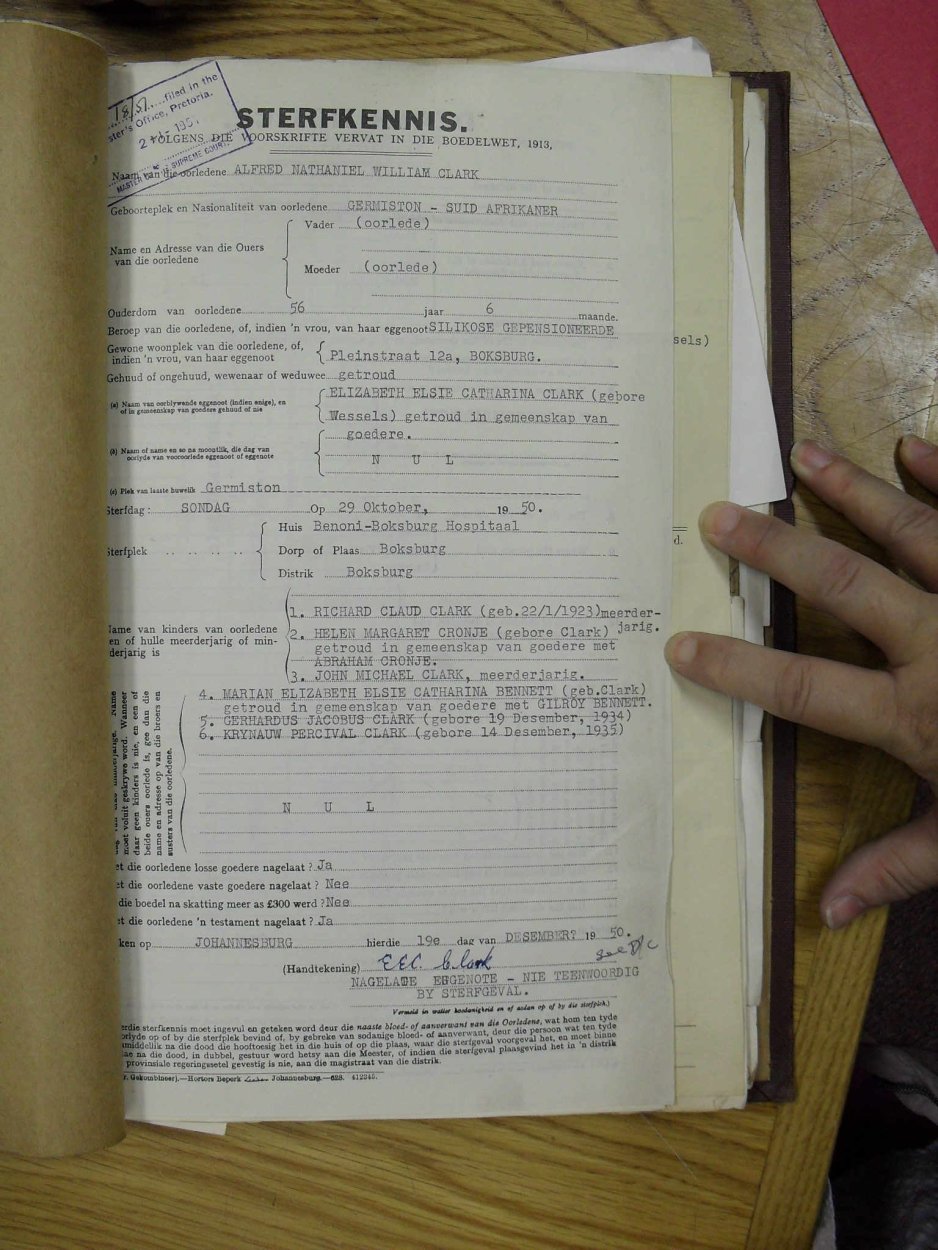 18/51 filed in the
ster's Office, Pretoria.
MASTER SUPREME COURT
STERFKENNIS.
VOLGENS DIE VOORSKRIFTE VERVAT IN DIE BOEDELWET, 1913,
Naam van die oorledene ALFRED NATHANIEL WILLIAM CLARK
Geboorteplek en Nasionaliteit van oorledene GERMISTON - SUID AFRIKANER
Name en Adresse van die Ouers
van die oorledene
Vader (oorlede)
Moeder (oorlede)
Ouderdom van oorledene 56 jaar 6 maande.
Beroep van die oorledene, of, indien 'n vrou, van haar eggenoot SILIKOSE GEPENSIONEERDE
Gewone woonplek van die oorledene, of,
indien 'n vrou, van haar eggenoot
Pleinstraat 12a, BOKSBURG.
Gehuud of ongehuud, wewenaar of weduwee getroud
(a) Naam van oorblywende eggenoot (indien enige), en
of in gemeenskap van goedere gehuud of nie
ELIZABETH ELSIE CATHARINA CLARK (gebore
Wessels) getroud in gemeenskap van
goedere.
(b) Naam of name en so na moontlik, die dag van
oorlyde van vooroorlede eggenoot of eggenote
N U L
(c) Plek van laaste huwelik Germiston
Sterfdag: SONDAG Op 29 Oktober, 19 50.
Sterfplek
Huis Benoni-Boksburg Hospitaal
Dorp of Plaas Boksburg
Distrik Boksburg
Name van kinders van oorledene
en of hulle meerderjarig of min-
derjarig is
1. RICHARD CLAUD CLARK (geb.22/1/1923)meerder-
jarig.
2. HELEN MARGARET CRONJE (gebore Clark)
getroud in gemeenskap van goedere met
ABRAHAM CRONJE.
3. JOHN MICHAEL CLARK, meerderjarig.
4. MARIAN ELIZABETH ELSIE CATHARINA BENNETT (geb.Clark)
getroud in gemeenskap van goedere met GILROY BENNETT.
5. GERHARDUS JACOBUS CLARK (gebore 19 Desember, 1934)
6. KRYNAUW PERCIVAL CLARK (gebore 14 Desember, 1935)
Name
moet voluit geskrywe word. Wanneer
daar geen kinders is nie, en een of
beide ouers oorlede is, gee dan die
name en adresse op van die broers en
susters van die oorledene.
N U L
et die oorledene losse goedere nagelaat? Ja
et die oorledene vaste goedere nagelaat? Nee
die boedel na skatting meer as £300 werd? Nee
et die oorledene 'n testament nagelaat? Ja
ken op JOHANNESBURG hierdie 19e dag van DESEMBER? 19 50.
(Handtekening) EEC Clark
NAGELATE EGGENOTE - NIE TEENWOORDIG
BY STERFGEVAL.
Vermeld in watter hoedanigheid en of sodan op of by die sterfplek.)
erdie sterfkennis moet ingevul en geteken word deur die naaste bloed- of aanverwant van die Oorledene, wat hom ten tyde
orlyde op of by die sterfplek bevind of, by gebreke van sodanige bloed- of aanverwant, deur die persoon wat ten tyde
middelik na die dood die hooftoesig het in die huis of op die plaas, waar die sterfgeval voorgeval het, en moet binne
ae na die dood, in dubbel, gestuur word hetsy aan die Meester, of indien die sterfgeval plaasgevind het in 'n distrik
provinsiale regeringssetel gevestig is nie, aan die magistraat van die distrik.
r. Gekombineer).—Hortors Beperk Johannesburg.—628. 412345.
sels)
d.